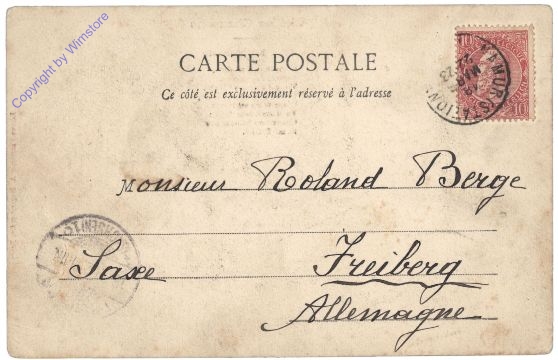 Copyright by Wimstore
10 10
NAMUR (STATION)
CARTE POSTALE
Ce côté est exclusivement réservé à l'adresse
Monsieur Roland Berge
Saxe Freiberg
Allemagne